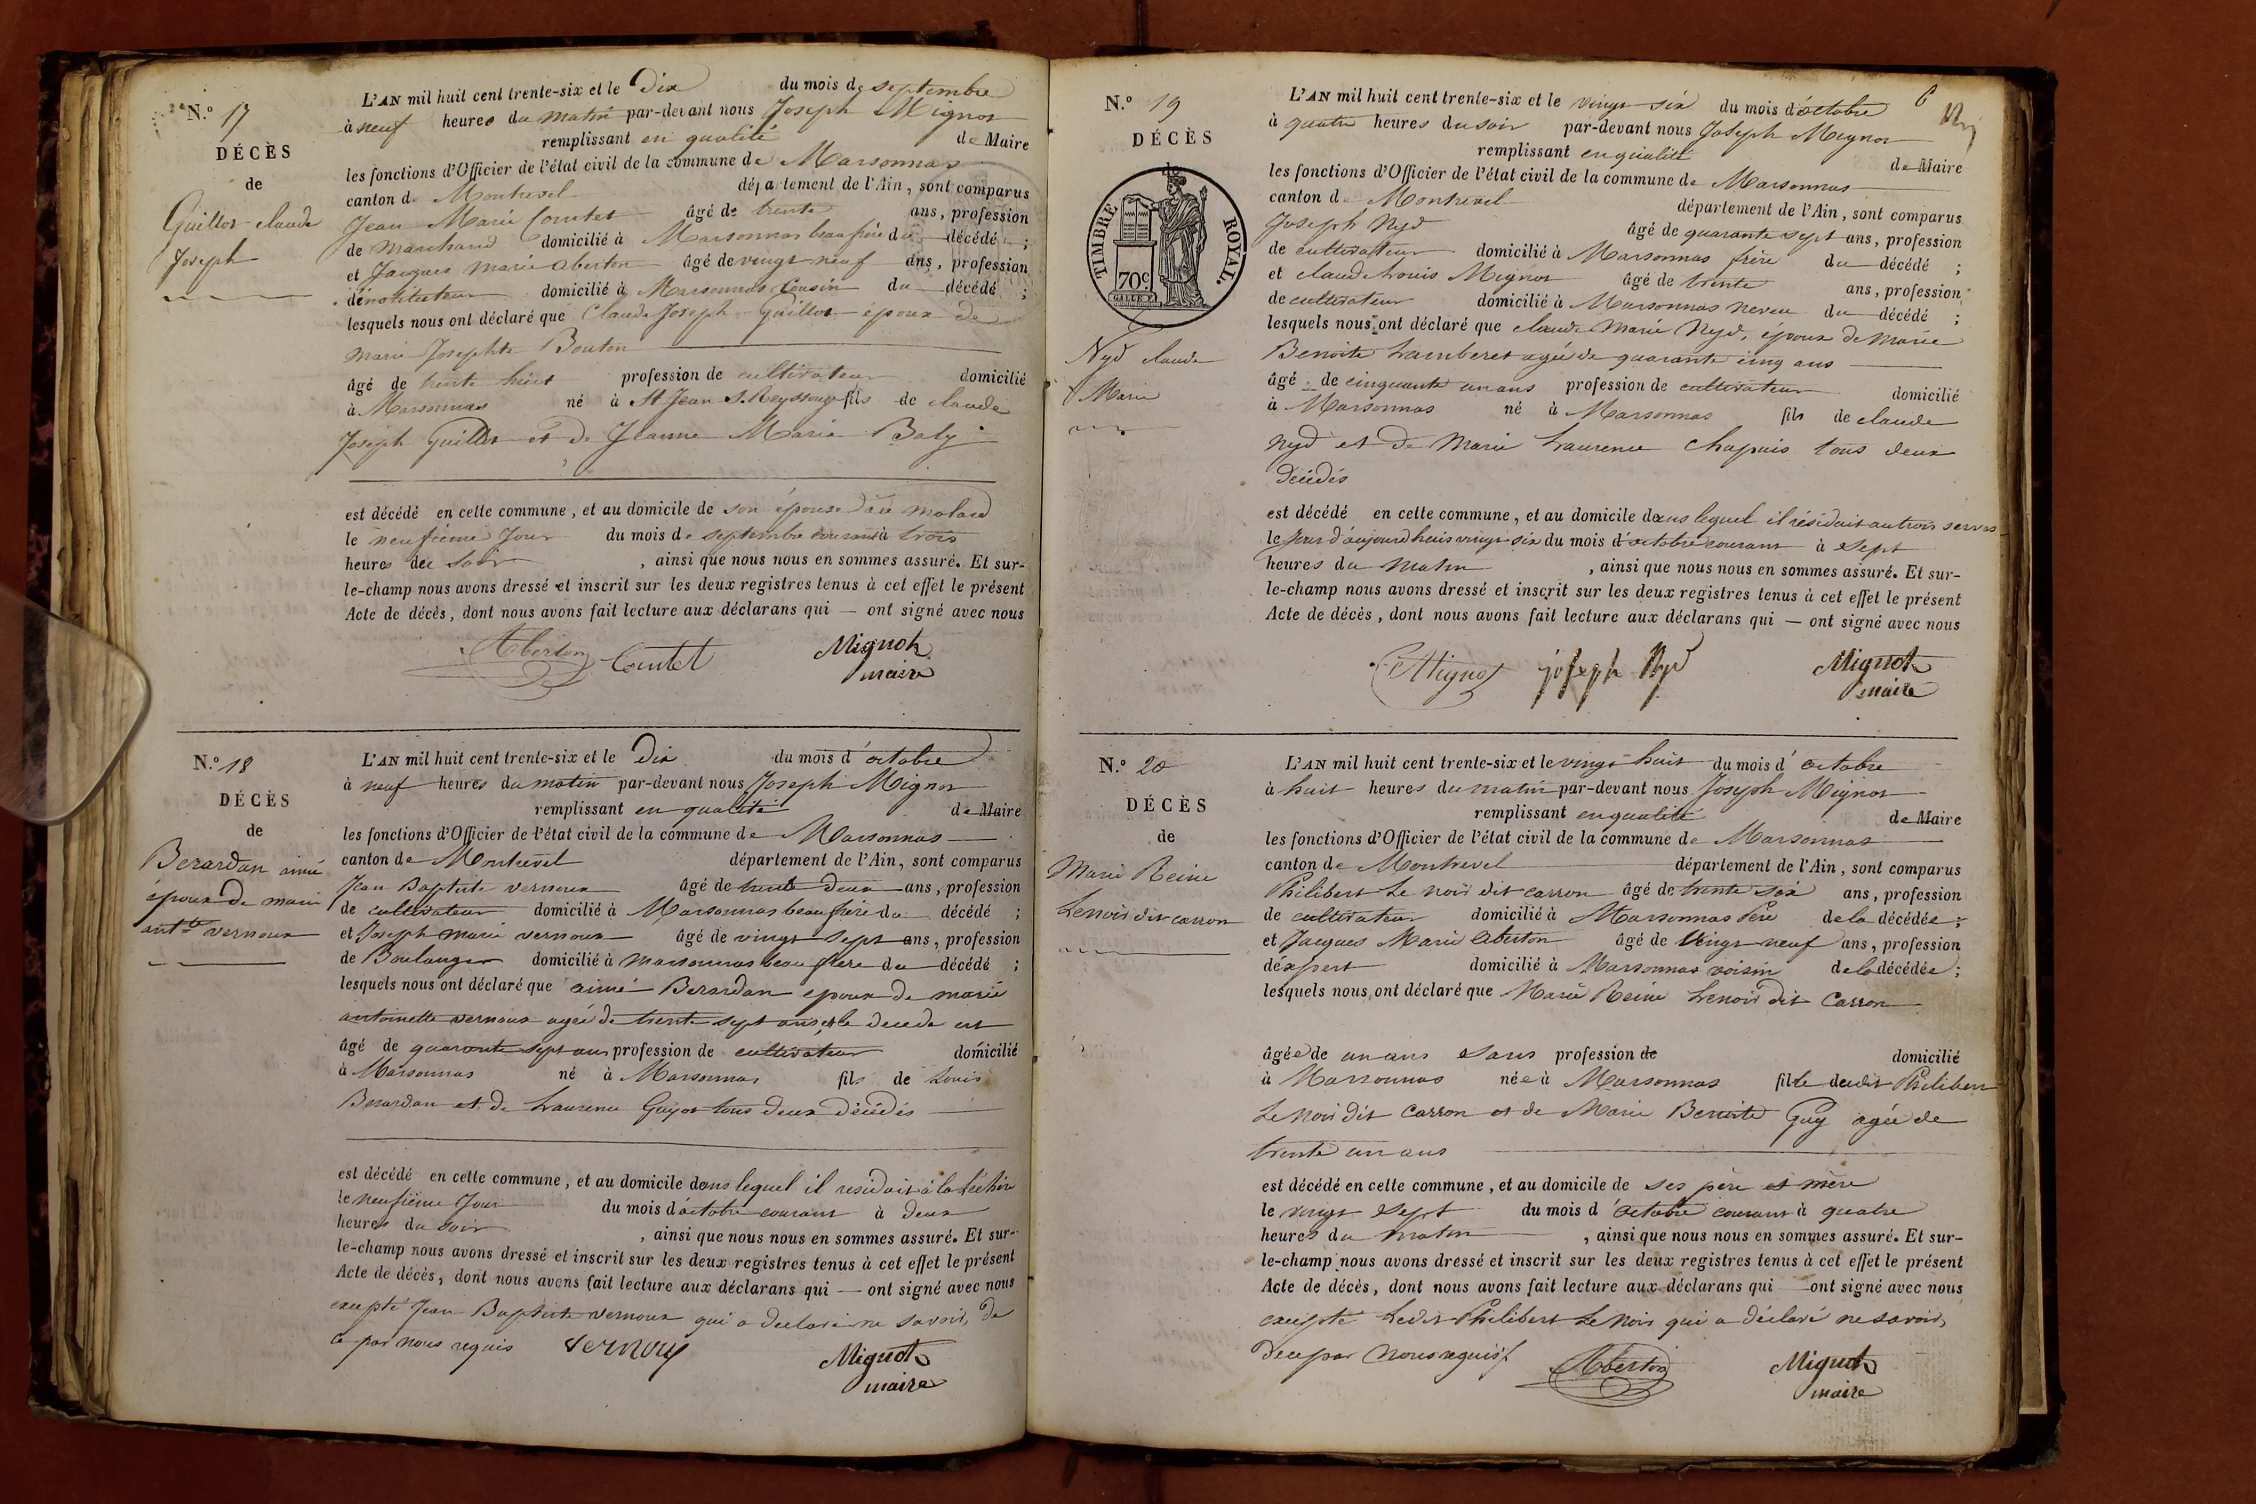 N.° 17
DÉCÈS
de
Guillot claude
Joseph
L'AN mil huit cent trente-six et le Dix du mois de septembre
à neuf heures du matin par-devant nous Joseph Mignot
remplissant en qualité de Maire
les fonctions d'Officier de l'état civil de la commune de Marsonnas
canton de Montrevel département de l'Ain, sont comparus
Jean Marie Contet âgé de trente ans, profession
de marchand domicilié à Marsonnas beau frère du décédé ;
et Jacques marie Aberton âgé de vingt neuf ans, profession
d'instituteur domicilié à Marsonnas Cousin du décédé ;
lesquels nous ont déclaré que Claude Joseph Guillot époux de
marie Josephte Bouton
âgé de trente huit profession de cultivateur domicilié
à Marsonnas né à St Jean S. Reyssouze fils de claude
Joseph Guillot et de Jeanne Marie Baly
est décédé en cette commune, et au domicile de son épouse au molard
le neufième Jour du mois de septembre courant à trois
heures du soir , ainsi que nous nous en sommes assuré. Et sur-
le-champ nous avons dressé et inscrit sur les deux registres tenus à cet effet le présent
Acte de décès, dont nous avons fait lecture aux déclarans qui — ont signé avec nous
Aberton Contet Mignot
maire
N.° 18
DÉCÈS
de
Berardan aimé
epoux de marie
antte vernoux
L'AN mil huit cent trente-six et le Dix du mois d'octobre
à neuf heures du matin par-devant nous Joseph Mignot
remplissant en qualité de Maire
les fonctions d'Officier de l'état civil de la commune de Marsonnas
canton de Montrevel département de l'Ain, sont comparus
Jean Baptiste vernoux âgé de trente deux ans, profession
de cultivateur domicilié à Marsonnas beau frère du décédé ;
et Joseph marie vernoux âgé de vingt sept ans, profession
de Boulanger domicilié à marsonnas beau frère du décédé ;
lesquels nous ont déclaré que aimé Berardan epoux de marie
antoinette vernoux agée de trente sept ans, et le decede est
âgé de quarante sept ans profession de cultivateur domicilié
à Marsonnas né à Marsonnas fils de Louis
Berardan et de Laurence Guyot tous deux décédés
est décédé en cette commune, et au domicile dans lequel il residait à la
le neufième Jour du mois d'octobre courant à deux
heures du soir , ainsi que nous nous en sommes assuré. Et sur-
le-champ nous avons dressé et inscrit sur les deux registres tenus à cet effet le présent
Acte de décès, dont nous avons fait lecture aux déclarans qui — ont signé avec nous
excepté Jean Baptiste vernoux qui a declaré ne savoir, de
ce par nous requis vernoux Mignot
maire
6
N.° 19
DÉCÈS
TIMBRE ROYAL.
70c
Nyd claude
Marie
L'AN mil huit cent trente-six et le vingt six du mois d'octobre
à quatre heures du soir par-devant nous Joseph Mignot
remplissant en qualité de Maire
les fonctions d'Officier de l'état civil de la commune de Marsonnas
canton de Montrevel département de l'Ain, sont comparus
Joseph Nyd âgé de quarante sept ans, profession
de cultivateur domicilié à Marsonnas frère du décédé ;
et claude Louis Mignot âgé de trente ans, profession
de cultivateur domicilié à Marsonnas neveu du décédé ;
lesquels nous ont déclaré que claude Marie Nyd, époux de marie
Benoite Lamberet agée de quarante cinq ans
âgé de cinquante un ans profession de cultivateur domicilié
à Marsonnas né à Marsonnas fils de claude
Nyd et de Marie Laurence Chapuis tous deux
décédés
est décédé en cette commune, et au domicile dans lequel il résidait au trois serves
le Jour d'aujourd'huis vingt six du mois d'octobre courant à sept
heures du matin , ainsi que nous nous en sommes assuré. Et sur-
le-champ nous avons dressé et inscrit sur les deux registres tenus à cet effet le présent
Acte de décès, dont nous avons fait lecture aux déclarans qui — ont signé avec nous
Mignot joseph Nyd Mignot
maire
N.° 20
DÉCÈS
de
Marie Reine
Lenoir dit carron
L'AN mil huit cent trente-six et le vingt huit du mois d'octobre
à huit heures du matin par-devant nous Joseph Mignot
remplissant en qualité de Maire
les fonctions d'Officier de l'état civil de la commune de Marsonnas
canton de Montrevel département de l'Ain, sont comparus
Philibert Le noir dit carron âgé de trente six ans, profession
de cultivateur domicilié à Marsonnas Père de la décédée ;
et Jacques Marie Aberton âgé de Vingt neuf ans, profession
d'éxpert domicilié à Marsonnas voisin de la décédée ;
lesquels nous ont déclaré que Marie Reine Lenoir dit Carron
âgée de un ans sans profession de domicilié
à Marsonnas née à Marsonnas fille dudit Philibert
Le Noir dit Carron et de Marie Benoite Guy agée de
trente un ans
est décédé en cette commune, et au domicile de ses père et mère
le vingt sept du mois d'octobre courant à quatre
heures du matin , ainsi que nous nous en sommes assuré. Et sur-
le-champ nous avons dressé et inscrit sur les deux registres tenus à cet effet le présent
Acte de décès, dont nous avons fait lecture aux déclarans qui — ont signé avec nous
excepté Ledit Philibert Le Noir qui a déclaré ne savoir,
de ce par Nous requis Aberton Mignot
maire